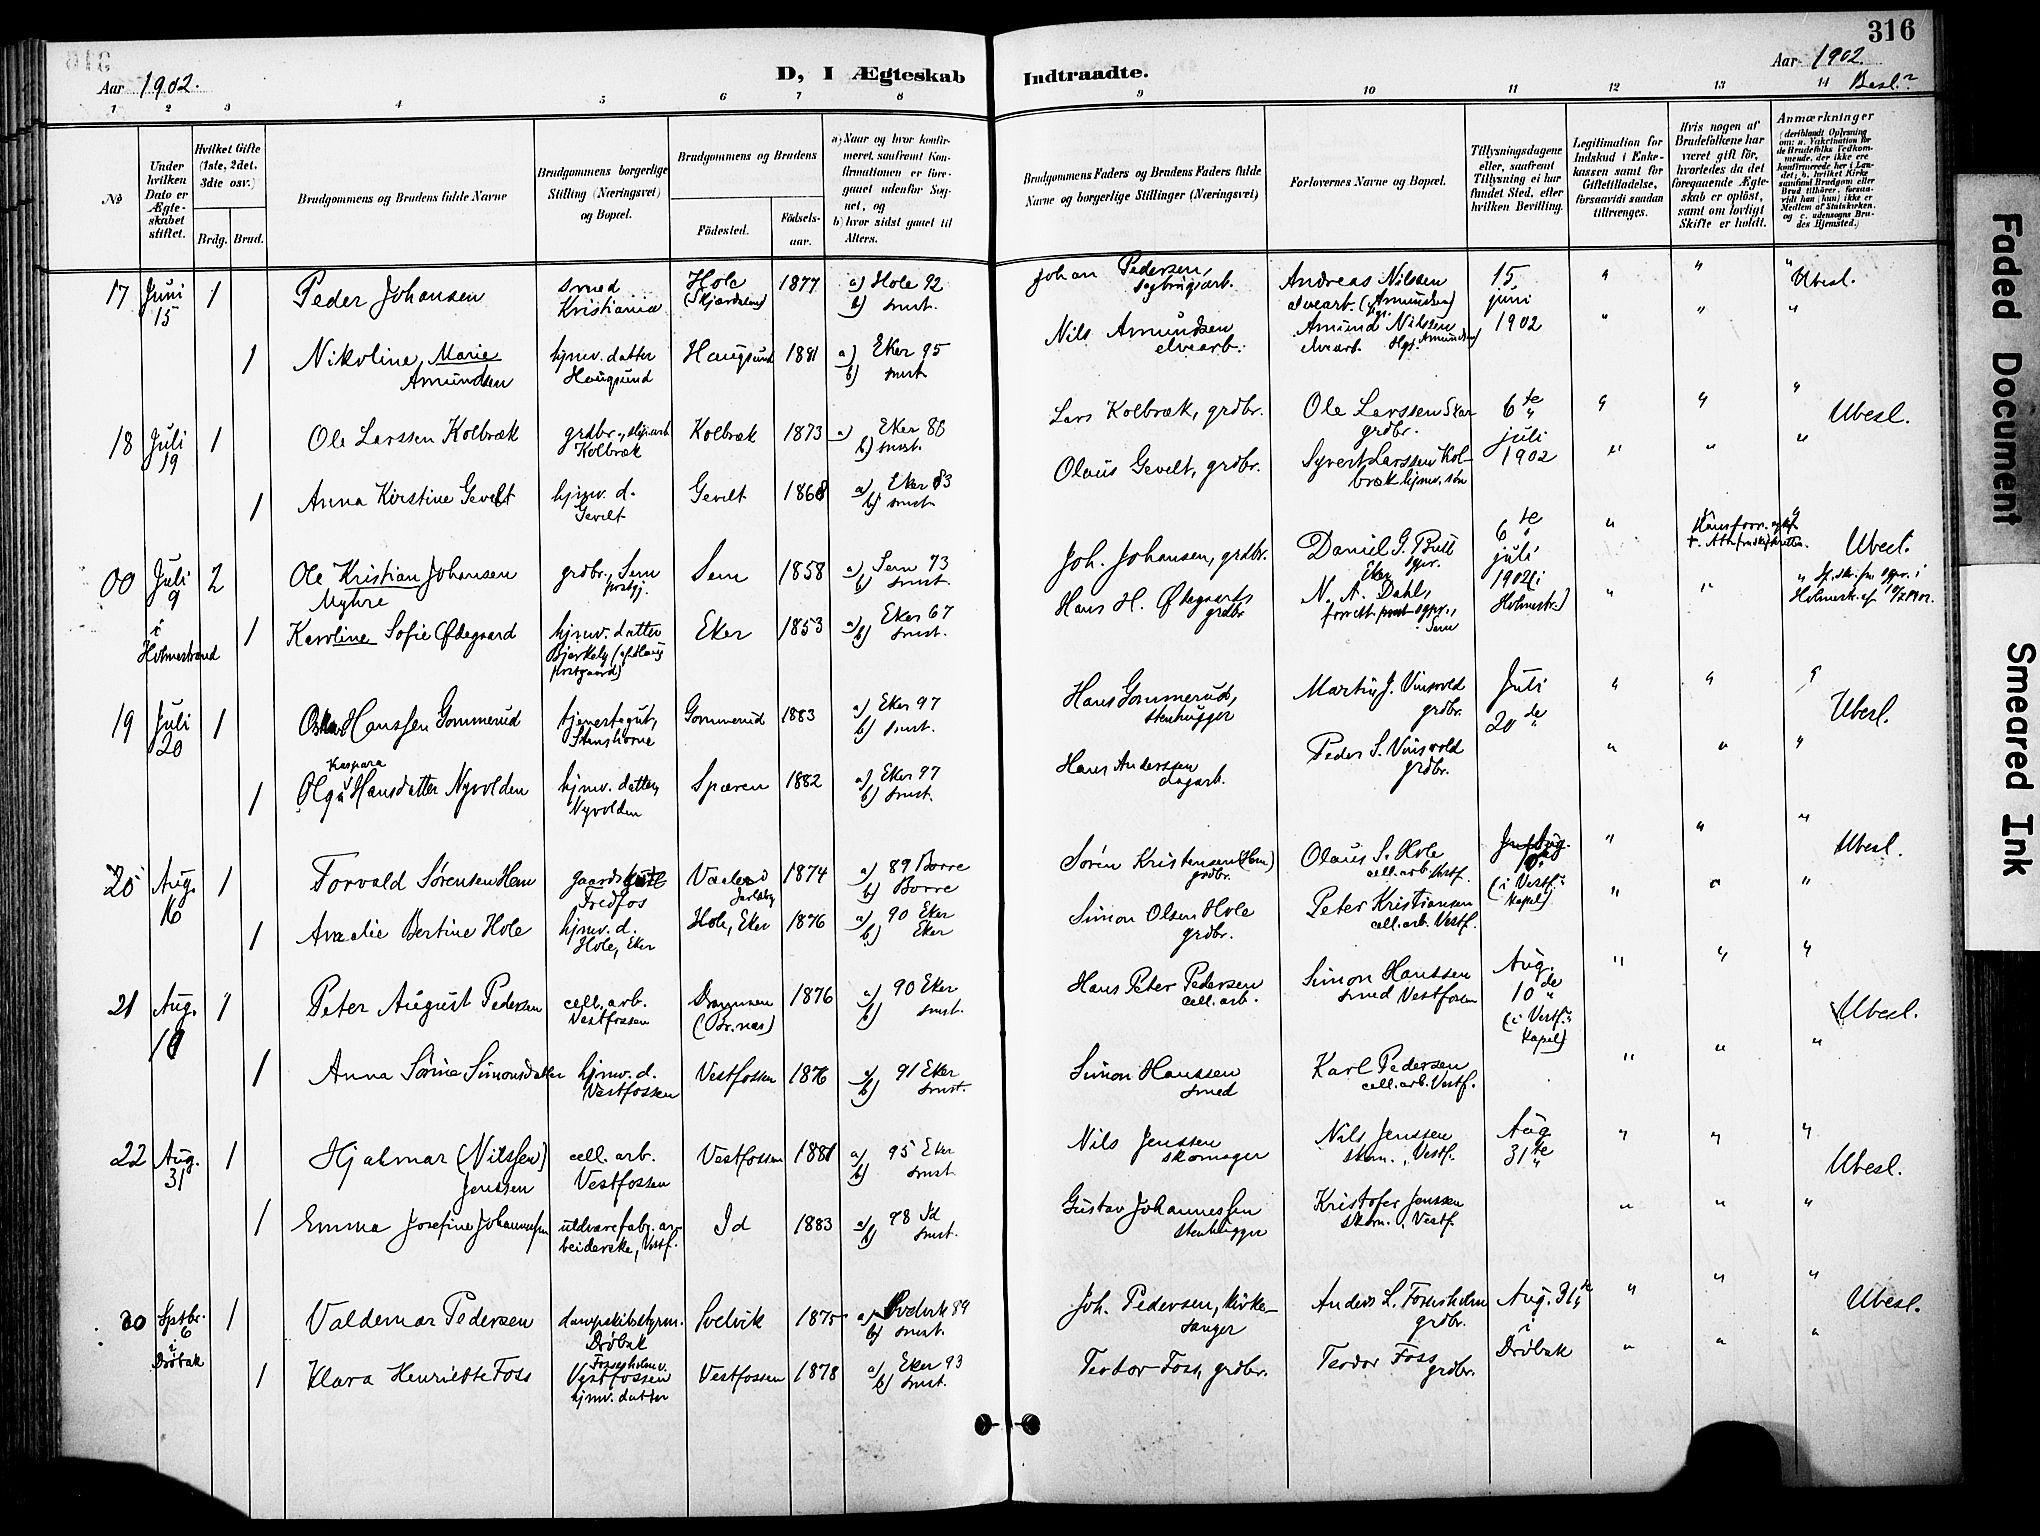 316
Aar 1902.
D, I Ægteskab Indtraadte.
Aar 1902.
1 2 3 4 5 6 7 8 9 10 11 12 13 14 Besl.?
No
Under hvilken Dato er Ægteskabet stiftet.
Hvilket Gifte (1ste, 2det, 3dte osv.)
Brdg. Brud.
Brudgommens og Brudens fulde Navne
Brudgommens borgerlige Stilling (Næringsvei) og Bopæl.
Brudgommens og Brudens
Fødested.
Fødselsaar.
a) Naar og hvor konfirmeret, saafremt Konfirmationen er foregaaet udenfor Sognet, og
b) hvor sidst gaaet til Alters.
Brudgommens Faders og Brudens Faders fulde Navne og borgerlige Stillinger (Næringsvei)
Forlovernes Navne og Bopæl.
Tillysningsdagene eller, saafremt Tillysning ei har fundet Sted, efter hvilken Bevilling.
Legitimation for Indskud i Enkekassen samt for Giftetilladelse, forsaavidt saadan tiltrænges.
Hvis nogen af Brudefolkene har været gift før, hvorledes da det foregaaende Ægteskab er opløst, samt om lovligt Skifte er holdt.
Anmærkninger
(deriblandt Oplysning om: a. Vakcination for de Brudefolks Vedkommende, der ikke ere konfirmerede her i Landet; b. hvilket Kirkesamfund Brudgom eller Brud tilhører, forsaavidt han (hun) ikke er Medlem af Statskirken, og c. udensogns Brudes Hjemsted.)
17 Juni 15 1 Peder Johansen smed Kristiania Hole (Skjærdalen) 1877 a) Hole 92 b) smst. Johan Pedersen, sagbrugsarb. Andreas Nilssen elvearb. (Amundsen) 15 juni 1902 " " " Ubesl.
1 Nikoline Marie Amundsen hjmv. datter Haugsund Haugsund 1881 a) Eker 95 b) smst. Nils Amundsen elvearb. Amund Nilssen elvearb. Hgs. (Amundsen) " " "
18 Juli 19 1 Ole Larssen Kolbræk grdbr., Kolbræk Kolbræk 1873 a) Eker 88 b) smst. Lars Kolbræk, grdbr. Ole Larssen Skar grdbr. 6te juli 1902 " " " Ubesl.
1 Anna Kirstine Gevelt hjmv. d. Gevelt Gevelt 1868 a) Eker 83 b) smst. Olaus Gevelt, grdbr. Syvert Larssen Kolbræk hjmv. søn " " "
00 Juli 9 i Holmestrand 2 Ole Kristian Johansen Myhre grdbr., Sem Sem 1858 a) Sem 73 b) smst. Joh. Johansen, grdbr. Daniel G. Bull Eker 6te juli 1902 (i Holmestr.) " Ubesl.
1 Karoline Sofie Ødegaard hjmv. datter Bjerkely Eker 1853 a) Eker 67 b) smst. Hans H. Ødegaard, grdbr N. A. Dahl, Sem " "
19 Juli 20 1 Oskar Hanssen Gommerud tjenestegut, Stenshorne Gommerud 1883 a) Eker 97 b) smst. Hans Gommerud, stenhugger Martin J. Vinsvold grdbr. Juli 20de " " " Ubesl.
1 Olga Kaspara Hansdatter Nyvolden hjmv. datter, Nyvolden Spæren 1882 a) Eker 97 b) smst. Hans Anderssen dagarb. Peder S. Vinsvold grdbr. " " "
20 Aug. 16 1 Torvald Sørensen Hem gaardsgut Fredfos Vaale i Jarlsberg 1874 a) 89 Borre b) Borre Søren Kristensen (Hem) grdbr. Olaus S. Hole cell. arb. Vestf. (i Vestf: kapel) " " " Ubesl.
1 Amalie Bertine Hole hjmv. d. Hole, Eker Hole, Eker 1876 a) 90 Eker b) Eker Simon Olsen Hole grdbr. Peter Kristiansen cell. arb. Vestf. " " "
21 Aug. 1 Peter August Pedersen cell. arb. Vestfossen Drammen (Br.nes) 1876 a) 90 Eker b) smst. Hans Peter Pedersen cell. arb. Simon Hanssen smed Vestfossen Aug. 10de (i Vestf: kapel) " " " Ubesl.
1 Anna Sørine Simonsdatter hjmv. d. Vestfossen Vestfossen 1876 a) 91 Eker b) smst. Simon Hanssen smed Karl Pedersen cell. arb. Vestf. " " "
22 Aug. 31 1 Hjalmar (Nilssen) Jenssen cell. arb. Vestfossen Vestfossen 1881 a) 95 Eker b) smst. Nils Jenssen skomager Nils Jenssen skom., Vestf. Aug 31te " " " Ubesl.
1 Emma Josefine Johannessen uldvarefabr. arbeiderske, Vestf. Id 1883 a) 98 Id b) smst. Gustav Johannessen stenhugger Kristofer Jenssen skom., Vestf. " " "
00 Sptbr. 6 i Drøbak 1 Valdemar Pedersen dampskibsstyrm. Drøbak Svelvik 1875 a) Svelvik 89 b) smst. Joh. Pedersen, kirkesanger Anders L. Fossesholm grdbr. Aug. 31te i Drøbak " " " Ubesl.
1 Klara Henriette Foss Fossesholm v. Vestfossen hjmv. datter Vestfossen 1878 a) Eker 93 b) smst. Teodor Foss, grdbr. Teodor Foss grdbr. " " "
Faded Document
Smeared Ink